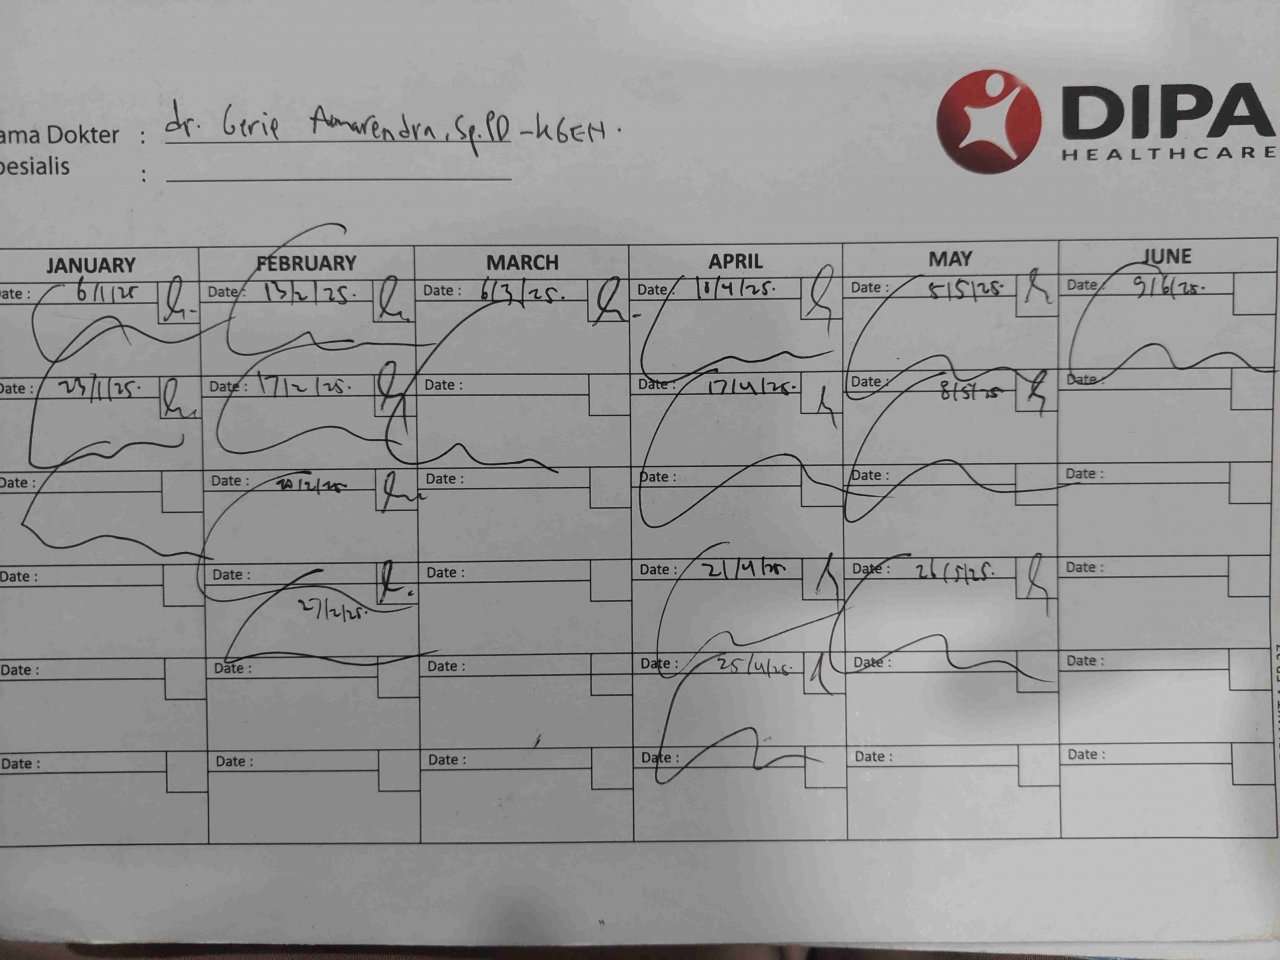 DIPA
HEALTHCARE
ama Dokter : dr. Gerie Amarendra, Sp.PD-KGEH.
pesialis :
JANUARY FEBRUARY MARCH APRIL MAY JUNE
ate : 6/1/25 Date : 13/2/25. Date : 6/3/25. Date : 10/4/25. Date : 5/5/25. Date : 9/6/25.
Date : 23/1/25. Date : 17/2/25. Date : Date : 17/4/25. Date : 8/5/25 Date :
Date : Date : 20/2/25 Date : Date : Date : Date :
Date : Date : 27/2/25. Date : Date : 21/4/25. Date : 26/5/25. Date :
Date : Date : Date : Date : 25/4/25. Date : Date :
Date : Date : Date : Date : Date : Date :